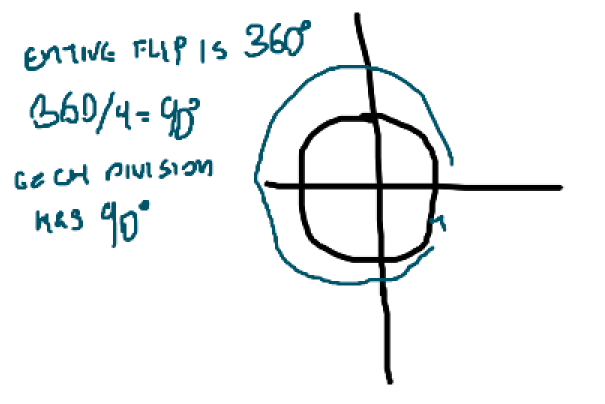 ENTIVE FLIP IS 360°
360/4=90°
GECH DIVISION
HAS 90°